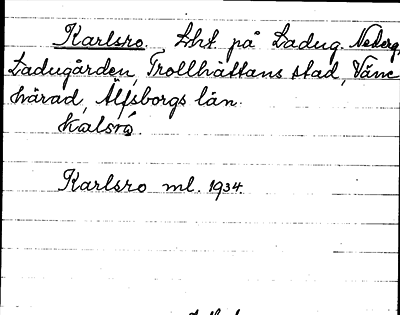 Karlsro, Lht på Ladug. Nederg.
Ladugården, Trollhättans stad, Väne
härad, Älfsborgs län.
Kalsrô.
Karlsro ml. 1934.